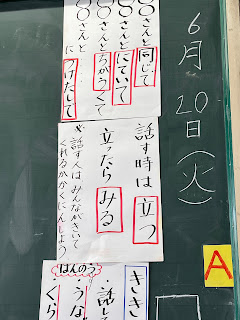 6月20日(火)
〇さんと同じで
〇〇さんとにていて
〇〇さんとちがうくて
〇〇さんに
つけたして
話す時は立つ
立ったらみる
※話す人はみんながきいて
くれるかかくにんしよう
A
きき
・話し
はんのう
・うな
・くら